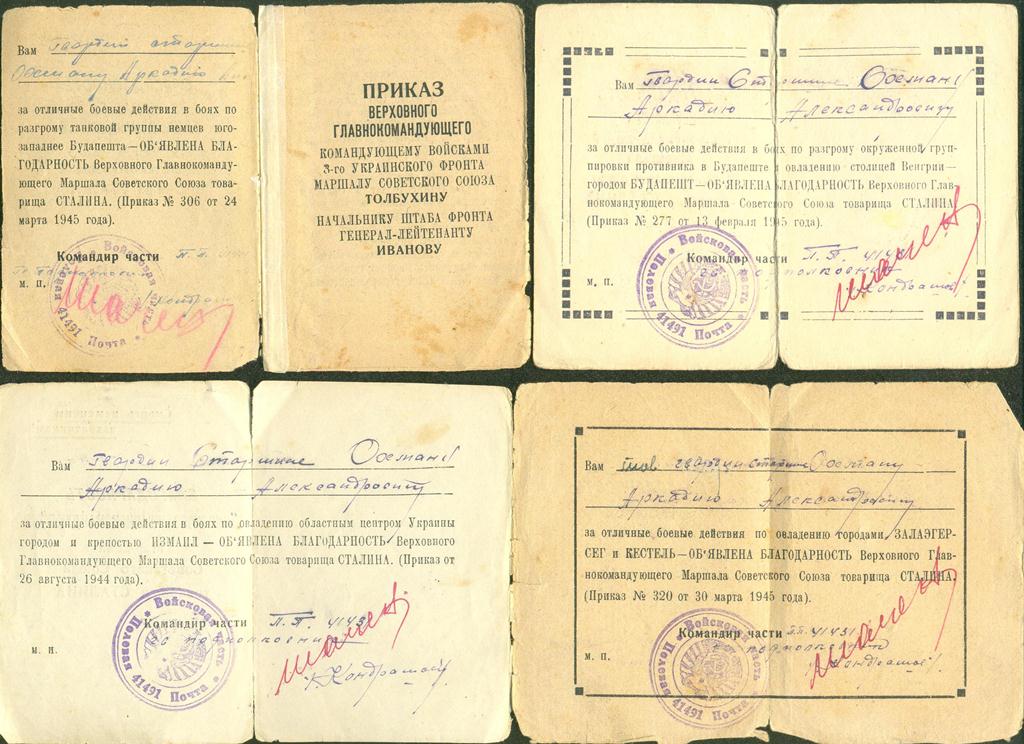 Вам Гвардии
Аркадию
за отличные боевые действия в боях по
разгрому танковой группы немцев юго-
западнее Будапешта—ОБ‘ЯВЛЕНА БЛА-
ГОДАРНОСТЬ Верховного Главнокоманду-
ющего Маршала Советского Союза това-
рища СТАЛИНА. (Приказ № 306 от 24
марта 1945 года).
Командир части П.П.
М. П.
Войсковая часть
41491 Почта
Полевая
ПРИКАЗ
ВЕРХОВНОГО
ГЛАВНОКОМАНДУЮЩЕГО
КОМАНДУЮЩЕМУ ВОЙСКАМИ
3-го УКРАИНСКОГО ФРОНТА
МАРШАЛУ СОВЕТСКОГО СОЮЗА
ТОЛБУХИНУ
НАЧАЛЬНИКУ ШТАБА ФРОНТА
ГЕНЕРАЛ-ЛЕЙТЕНАНТУ
ИВАНОВУ
Вам Гвардии
Аркадию Александровичу
за отличные боевые действия в боях по разгрому окруженной груп-
пировки противника в Будапеште и овладению столицей Венгрии—
городом БУДАПЕШТ—ОБ‘ЯВЛЕНА БЛАГОДАРНОСТЬ Верховного Глав-
нокомандующего Маршала Советского Союза товарища СТАЛИНА.
(Приказ № 277 от 13 февраля 1945 года).
Командир части П.П.
подполковник
М. П. Кондрашов
Войсковая часть
41491 Почта
Полевая
Вам Гвардии Старшине
Аркадию Александровичу
за отличные боевые действия в боях по овладению областным центром Украины
городом и крепостью ИЗМАИЛ — ОБ‘ЯВЛЕНА БЛАГОДАРНОСТЬ Верховного
Главнокомандующего Маршала Советского Союза товарища СТАЛИНА. (Приказ от
26 августа 1944 года).
Командир части П.П.
подполковник
М. П. Кондрашов
Войсковая часть
41491 Почта
Полевая
Вам гвардии Старшине
Аркадию Александровичу
за отличные боевые действия по овладению городами ЗАЛАЭГЕР-
СЕГ и КЕСТЕЛЬ—ОБ‘ЯВЛЕНА БЛАГОДАРНОСТЬ Верховного Глав-
нокомандующего Маршала Советского Союза товарища СТАЛИНА.
(Приказ № 320 от 30 марта 1945 года).
Командир части
подполковник
М. П. Кондрашов
Войсковая часть
41491 Почта
Полевая